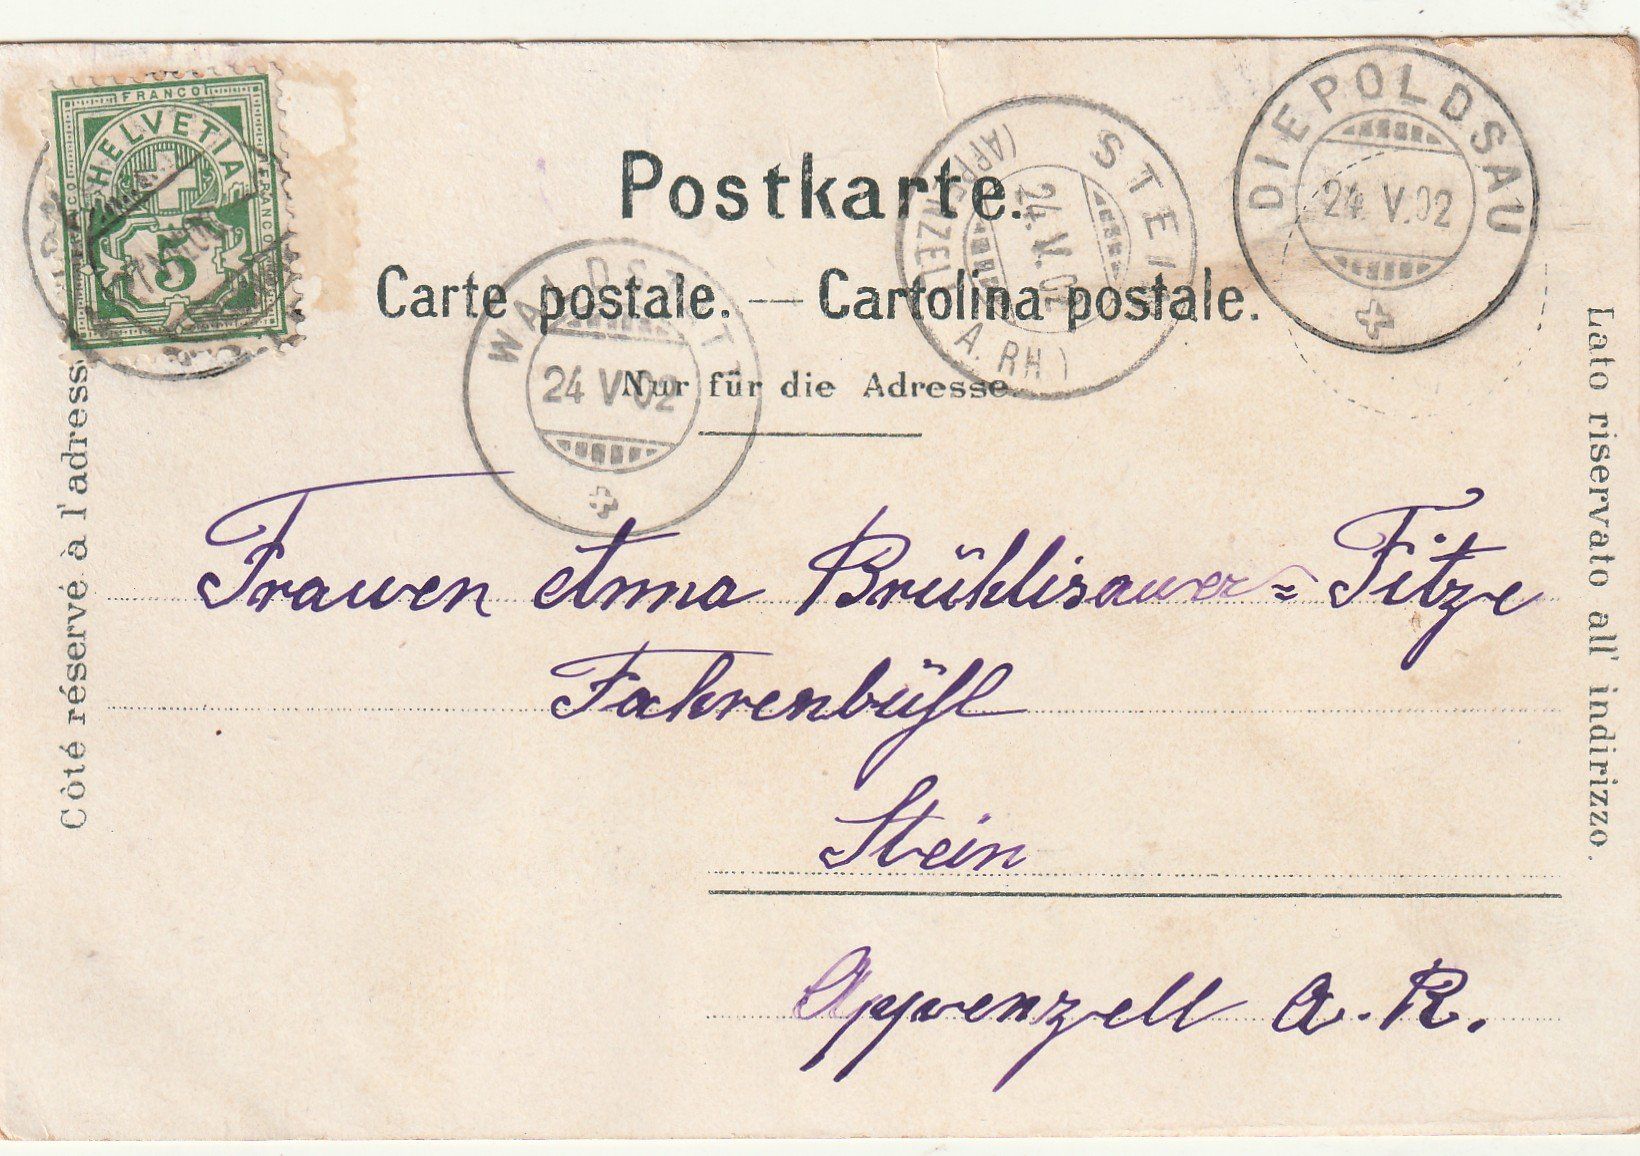 FRANCO
HELVETIA
FRANCO
FRANCO
5
Postkarte.
Carte postale. — Cartolina postale.
Nur für die Adresse.
DIEPOLDSAU
24 V.02
STEIN
(APPENZELL A.RH)
24.V.02
WALDSTATT
24 V 02
Côté réservé à l'adresse
Lato riservato all' indirizzo.
Frauen Anna Brühlisauer=Fitze
Fahrenbühl
Stein
Appenzell A.R.